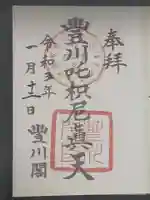 奉拝
豊川吒枳尼眞天
令和五年
一月十二日
豊川閣